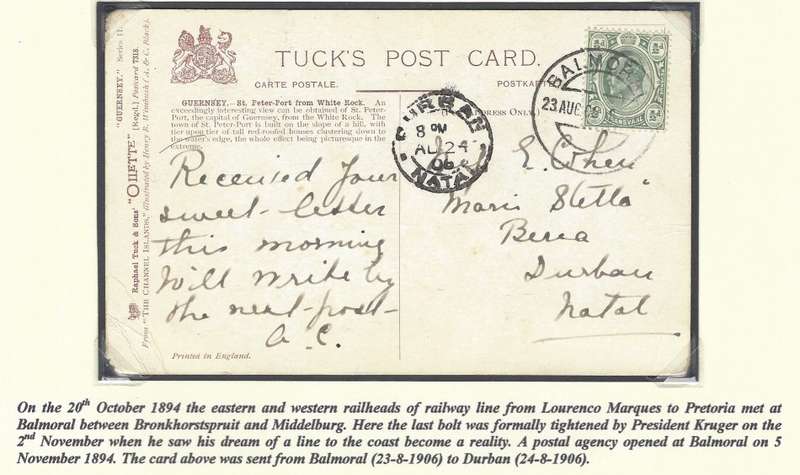 TUCK'S POST CARD.
CARTE POSTALE.
POSTKAR
GUERNSEY.— St. Peter-Port from White Rock. An
exceedingly interesting view can be obtained of St. Peter-
Port, the capital of Guernsey, from the White Rock. The
town of St. Peter-Port is built on the slope of a hill, with
tier upon tier of tall red-roofed houses clustering down to
the water's edge, the whole effect being picturesque in the
extreme.
"GUERNSEY." Series II.
Raphael Tuck & Sons' "OILETTE" (Regd.) Postcard 7318.
From "THE CHANNEL ISLANDS," Illustrated by Henry B. Wimbush (A. & C. Black).
Received your
sweet letter
this morning
Will write by
the next post-
A.C.
Printed in England.
DURBAN
8 PM
AU 24
06
NATAL
DRESS ONLY.)
BALMOR
23 AUG
½d
½d
TRANSVAAL
E. Cohen
"Maris Stella"
Berea
Durban
Natal
On the 20th October 1894 the eastern and western railheads of railway line from Lourenco Marques to Pretoria met at
Balmoral between Bronkhorstspruit and Middelburg. Here the last bolt was formally tightened by President Kruger on the
2nd November when he saw his dream of a line to the coast become a reality. A postal agency opened at Balmoral on 5
November 1894. The card above was sent from Balmoral (23-8-1906) to Durban (24-8-1906).